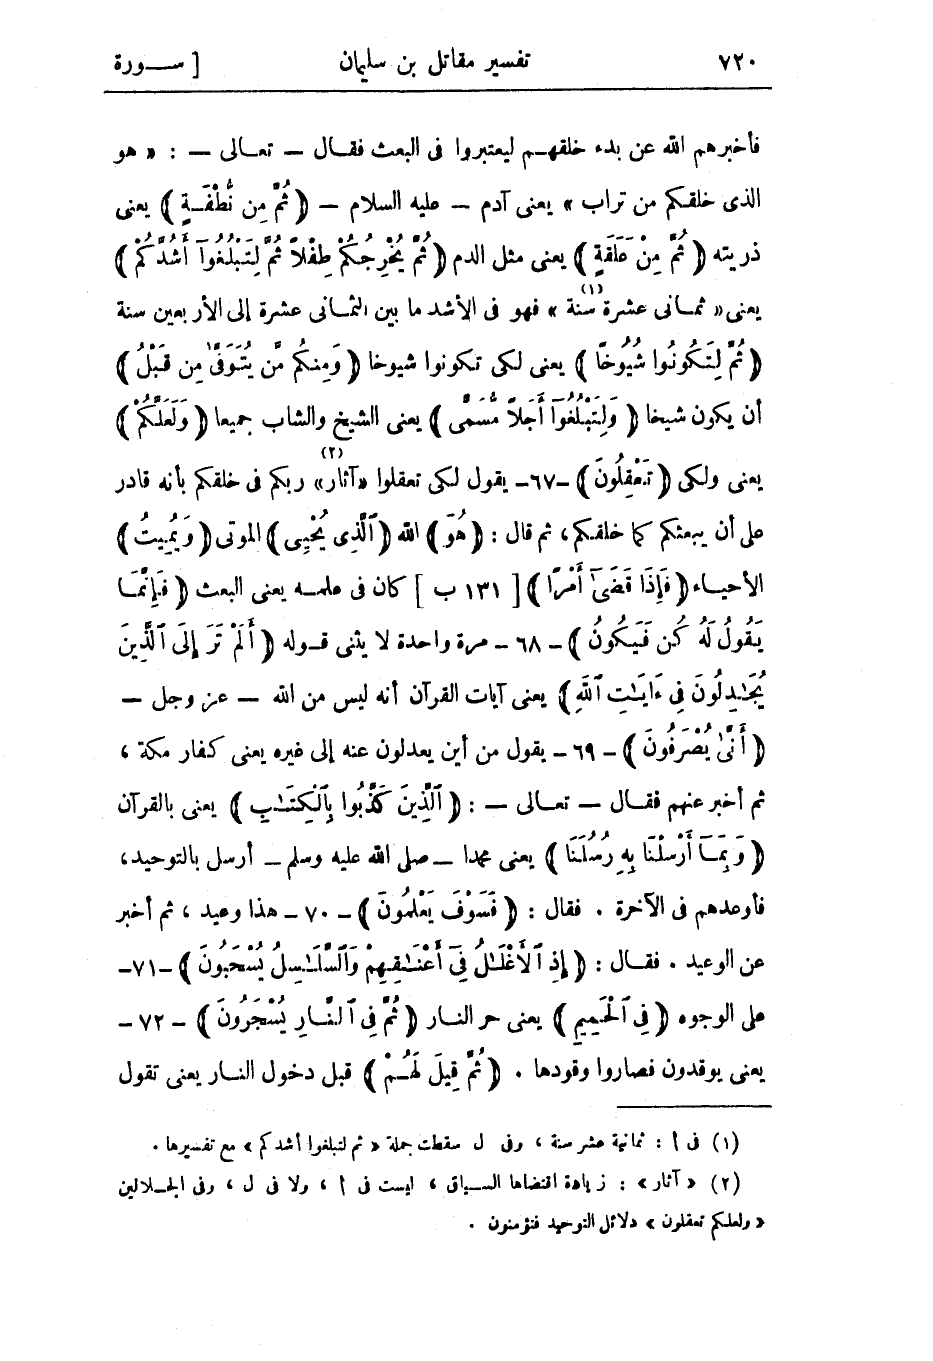 ٧٢٠ تفسير مقاتل بن سليمان [ ســورة
فأخبرهم الله عن بدء خلقهـم ليعتبروا فى البعث فقـال — تعـالى — : « هو
الذى خلقكم من تراب » يعنى آدم — عليه السلام — ( ثُمَّ مِن نُّطْفَـةٍ ) يعنى
ذريته ( ثُمَّ مِنْ عَلَقَةٍ ) يعنى مثل الدم ( ثُمَّ يُخْرِجُكُمْ طِفْلاً ثُمَّ لِتَبْلُغُوٓاْ أَشُدَّكُمْ )
يعنى « ثمـانى عشرة سنة »(١) فهو فى الأشد ما بين الثمـانى عشرة إلى الأربعين سنة
( ثُمَّ لِتَكُونُوا شُيُوخًا ) يعنى لكى تكونوا شيوخا ( وَمِنكُم مَّن يُتَوَفَّىٰ مِن قَبْلُ )
أن يكون شيخا ( وَلِتَبْلُغُوٓاْ أَجَلاً مُّسَمًّى ) يعنى الشيخ والشاب جميعا ( وَلَعَلَّكُمْ )
يعنى ولكى ( تَعْقِلُونَ ) -٦٧- يقول لكى تعقلوا «آثار»(٢) ربكم فى خلقكم بأنه قادر
على أن يبعثكم كما خلقكم، ثم قال : ( هُوَ ) الله ( ٱلَّذِى يُحْيِى ) الموتى ( وَيُمِيتُ )
الأحيـاء ( فَإِذَا قَضَىٰٓ أَمْرًا ) [ ١٣١ ب ] كان فى علمـه يعنى البعث ( فَإِنَّمَـا
يَقُولُ لَهُ كُن فَيَكُونُ ) - ٦٨ - مرة واحدة لا يثنى قـوله ( أَلَمْ تَرَ إِلَى ٱلَّذِينَ
يُجَـٰدِلُونَ فِىٓ ءَايَـٰتِ ٱللَّهِ ) يعنى آيات القرآن أنه ليس من الله — عز وجل —
( أَنَّىٰ يُصْرَفُونَ ) - ٦٩ - يقول من أين يعدلون عنه إلى غيره يعنى كفار مكة ،
ثم أخبر عنهم فقـال — تعـالى — : ( ٱلَّذِينَ كَذَّبُوا بِٱلْكِتَـٰبِ ) يعنى بالقرآن
( وَبِمَـآ أَرْسَلْنَا بِهِ رُسُلَنَا ) يعنى محمدا — صلى الله عليه وسلم — أرسل بالتوحيد،
فأوعدهم فى الآخرة . فقال : ( فَسَوْفَ يَعْلَمُونَ ) - ٧٠ - هذا وعيد ، ثم أخبر
عن الوعيد . فقـال : ( إِذِ ٱلْأَغْلَـٰلُ فِىٓ أَعْنَـٰقِهِمْ وَٱلسَّلَـٰسِلُ يُسْحَبُونَ ) -٧١-
على الوجوه ( فِى ٱلْحَمِيمِ ) يعنى حر النـار ( ثُمَّ فِى ٱلنَّـارِ يُسْجَرُونَ ) - ٧٢ -
يعنى يوقدون فصاروا وقودها . ( ثُمَّ قِيلَ لَهُـمْ ) قبل دخول النـار يعنى تقول
(١) فى أ : ثمانية عشر سنة ، وفى ل سقطت جملة « ثم لتبلغوا أشدكم » مع تفسيرها .
(٢) « آثار » : زيادة اقتضاها السـياق ، ليست فى أ ، ولا فى ل ، وفى الجـلالين
« ولعلكم تعقلون » دلائل التوحيد فتؤمنون .